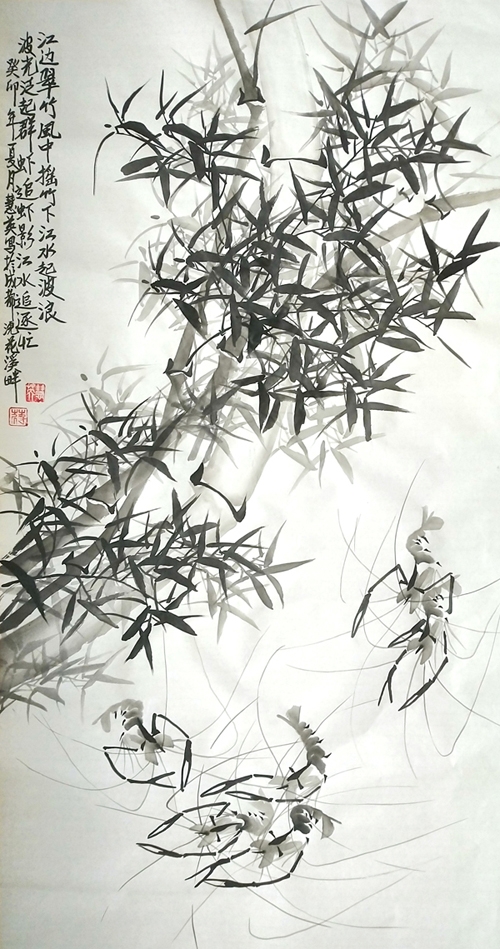 江边翠竹风中摇竹下江水起波浪
波光泛起群虾追虾影江水追逐忙
癸卯年夏月慧英写于成都浣花溪畔